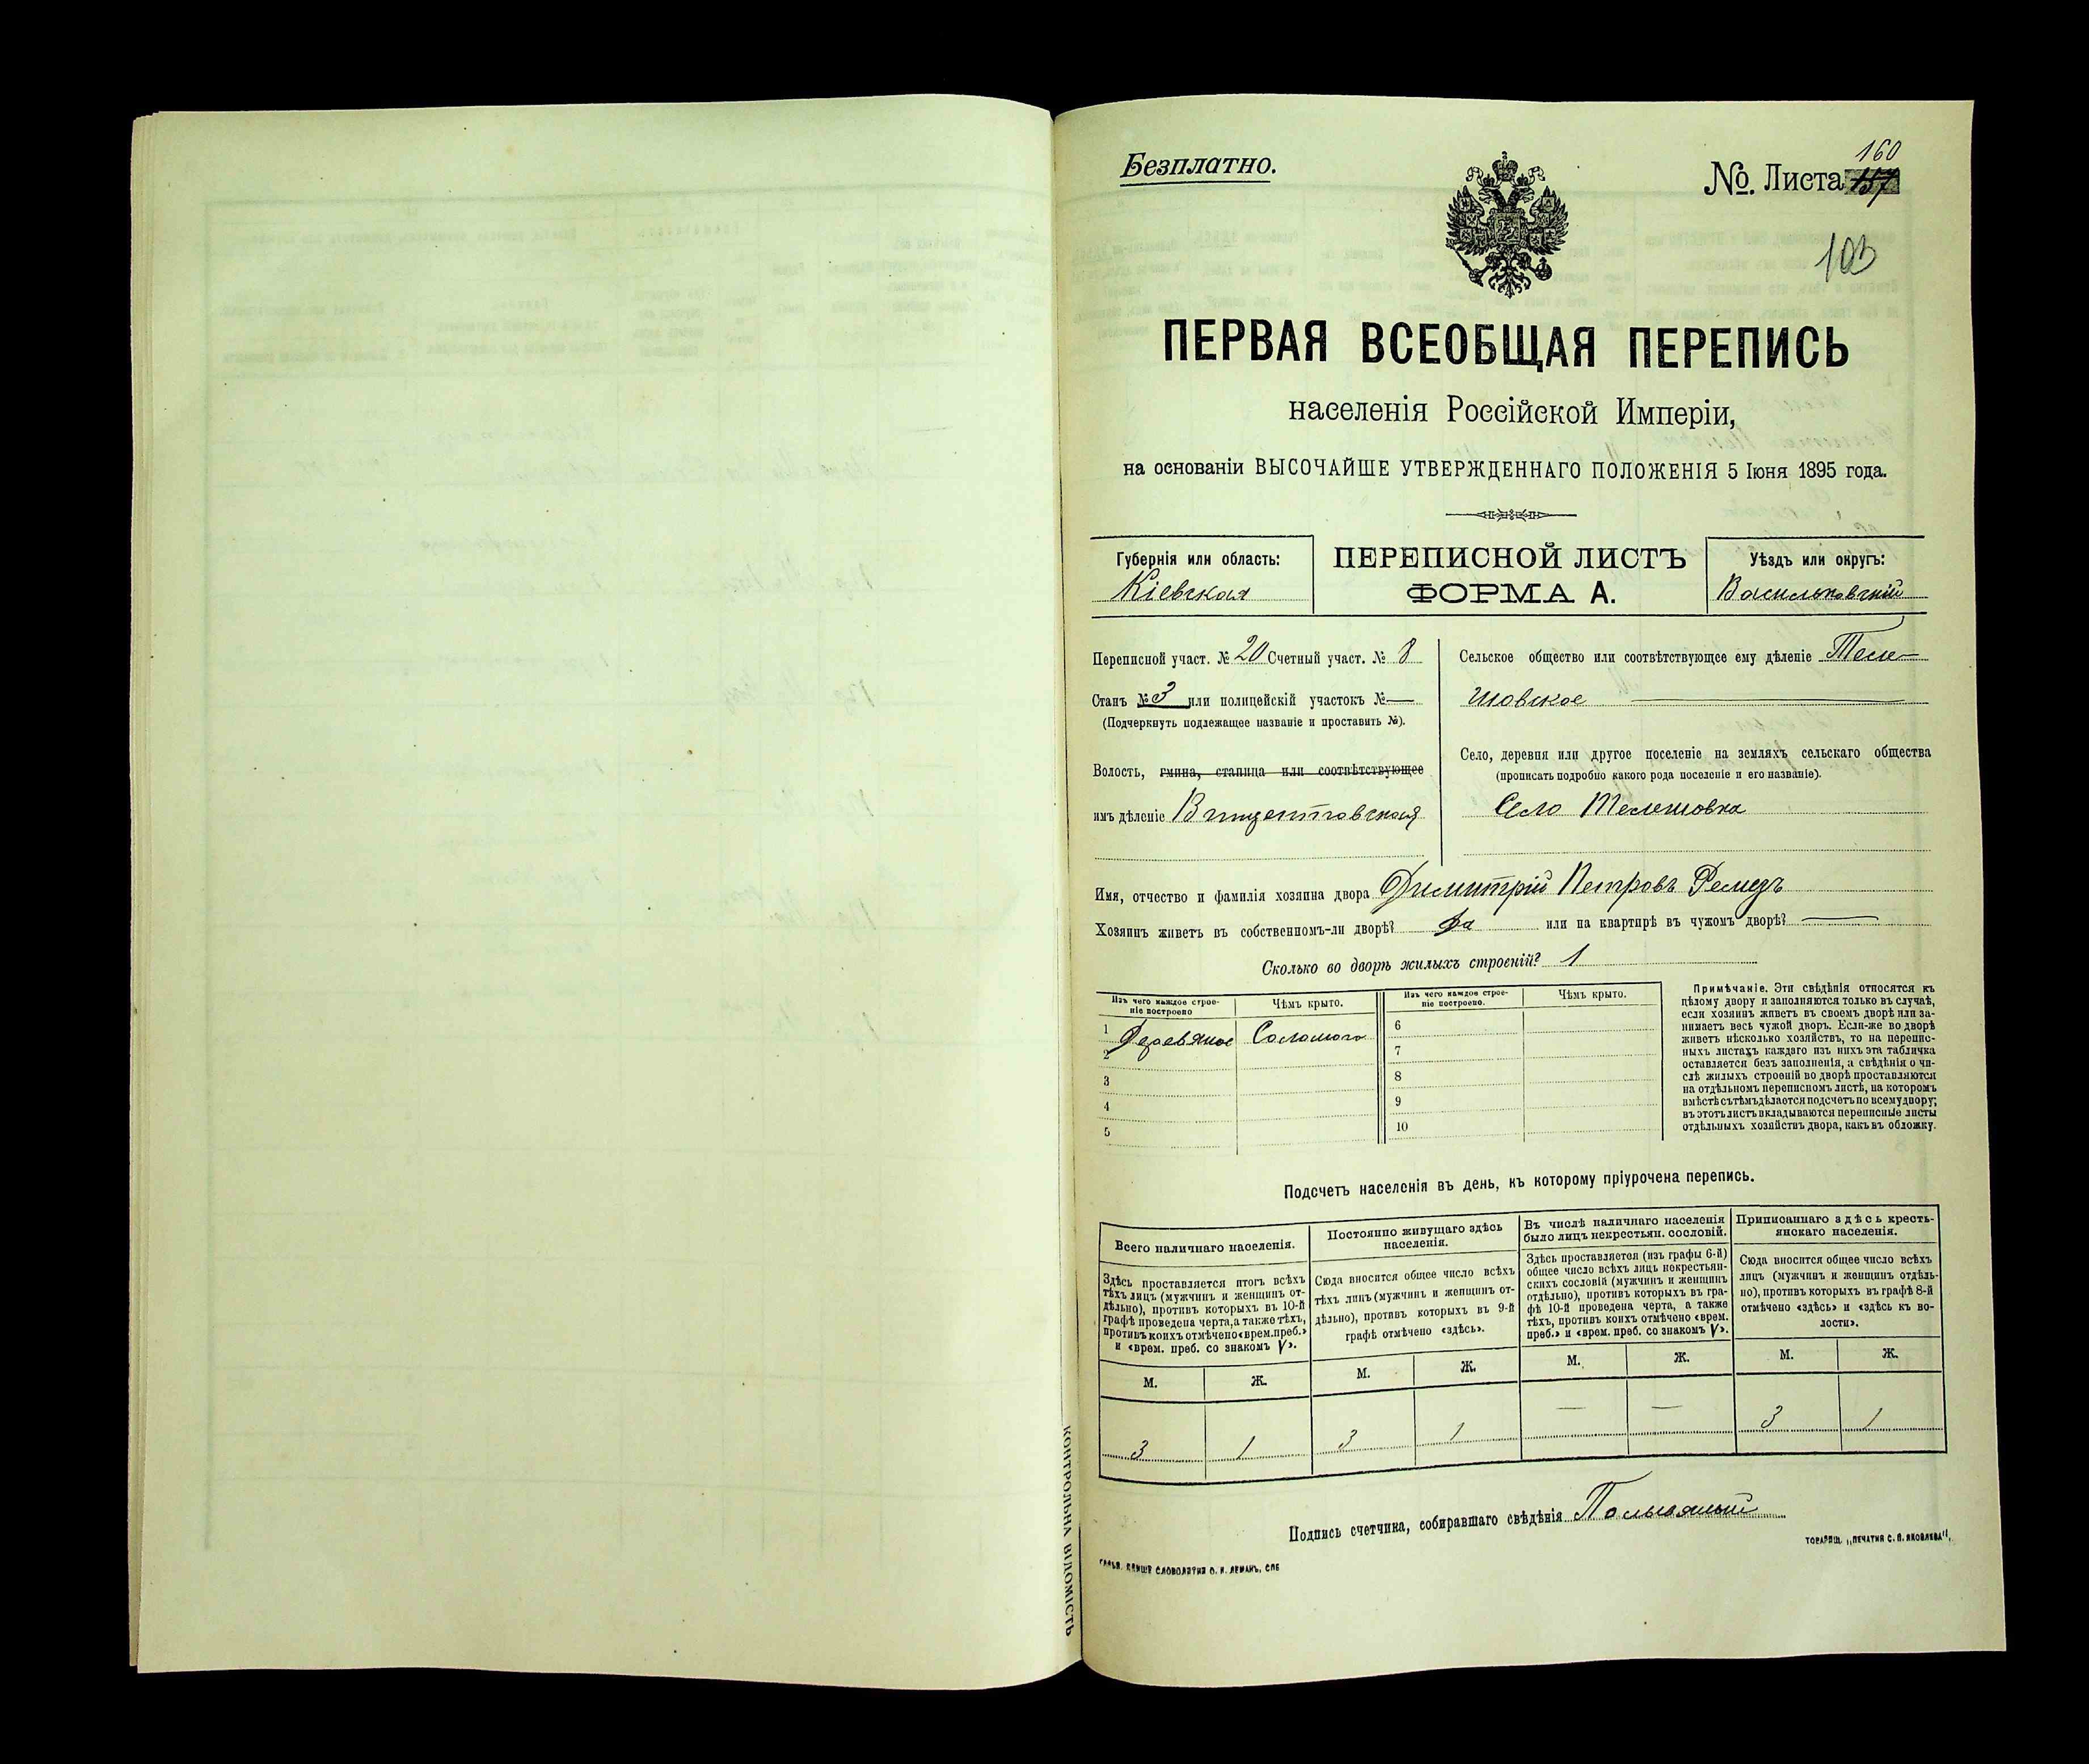 Безплатно.
160
№. Листа 157
103
ПЕРВАЯ ВСЕОБЩАЯ ПЕРЕПИСЬ
населенія Россійской Имперіи,
на основаніи ВЫСОЧАЙШЕ УТВЕРЖДЕННАГО ПОЛОЖЕНІЯ 5 Іюня 1895 года.
Губернія или область:
Кіевская
ПЕРЕПИСНОЙ ЛИСТЪ
ФОРМА А.
Уѣздъ или округъ:
Васильковскій
Переписной участ. № 20 Счетный участ. № 8
Станъ № 3 или полицейскій участокъ № —
(Подчеркнуть подлежащее названіе и проставить №).
Волость, гмина, станица или соотвѣтствующее
имъ дѣленіе Винцентовская
Сельское общество или соотвѣтствующее ему дѣленіе Теле-
шовское
Село, деревня или другое поселеніе на земляхъ сельскаго общества
(прописать подробно какого рода поселеніе и его названіе).
Село Телешовка
Имя, отчество и фамилія хозяина двора Димитрій Петровъ Ремезъ
Хозяинъ живетъ въ собственномъ-ли дворѣ? Да или на квартирѣ въ чужомъ дворѣ? —
Сколько во дворѣ жилыхъ строеній? 1
Изъ чего каждое строе-
ніе построено
Чѣмъ крыто.
Изъ чего каждое строе-
ніе построено.
Чѣмъ крыто.
1 Деревяное Соломою
2
3
4
5
6
7
8
9
10
Примѣчаніе. Эти свѣдѣнія относятся къ
цѣлому двору и заполняются только въ случаѣ,
если хозяинъ живетъ въ своемъ дворѣ или за-
нимаетъ весь чужой дворъ. Если-же во дворѣ
живетъ нѣсколько хозяйствъ, то на перепис-
ныхъ листахъ каждаго изъ нихъ эта табличка
оставляется безъ заполненія, а свѣдѣнія о чи-
слѣ жилыхъ строеній во дворѣ проставляются
на отдѣльномъ переписномъ листѣ, на которомъ
вмѣстѣ съ тѣмъ дѣлается подсчетъ по всему двору;
въ этотъ листъ вкладываются переписные листы
отдѣльныхъ хозяйствъ двора, какъ въ обложку.
Подсчетъ населенія въ день, къ которому пріурочена перепись.
Всего наличнаго населенія.
Здѣсь проставляется итогъ всѣхъ
тѣхъ лицъ (мужчинъ и женщинъ от-
дѣльно), противъ которыхъ въ 10-й
графѣ проведена черта, а также тѣхъ,
противъ коихъ отмѣчено «врем. преб.»
и «врем. преб. со знакомъ V».
Постоянно живущаго здѣсь
населенія.
Сюда вносится общее число всѣхъ
тѣхъ лицъ (мужчинъ и женщинъ от-
дѣльно), противъ которыхъ въ 9-й
графѣ отмѣчено «здѣсь».
Въ числѣ наличнаго населенія
было лицъ некрестьян. сословій.
Здѣсь проставляется (изъ графы 6-й)
общее число всѣхъ лицъ некрестьян-
скихъ сословій (мужчинъ и женщинъ
отдѣльно), противъ которыхъ въ гра-
фѣ 10-й проведена черта, а также
тѣхъ, противъ коихъ отмѣчено «врем.
преб.» и «врем. преб. со знакомъ V».
Приписаннаго здѣсь кресть-
янскаго населенія.
Сюда вносится общее число всѣхъ
лицъ (мужчинъ и женщинъ отдѣль-
но), противъ которыхъ въ графѣ 8-й
отмѣчено «здѣсь» и «здѣсь къ во-
лости».
М. Ж. М. Ж. М. Ж. М. Ж.
3 1 3 1 — — 3 1
Подпись счетчика, собиравшаго свѣдѣнія
ТОВАРИЩ. „ПЕЧАТНЯ С. П. ЯКОВЛЕВА",
СЛОВОЛИТНИ О. И. ЛЕМАНЪ, СПБ
КОНТРОЛЬНА ВІДОМІСТЬ